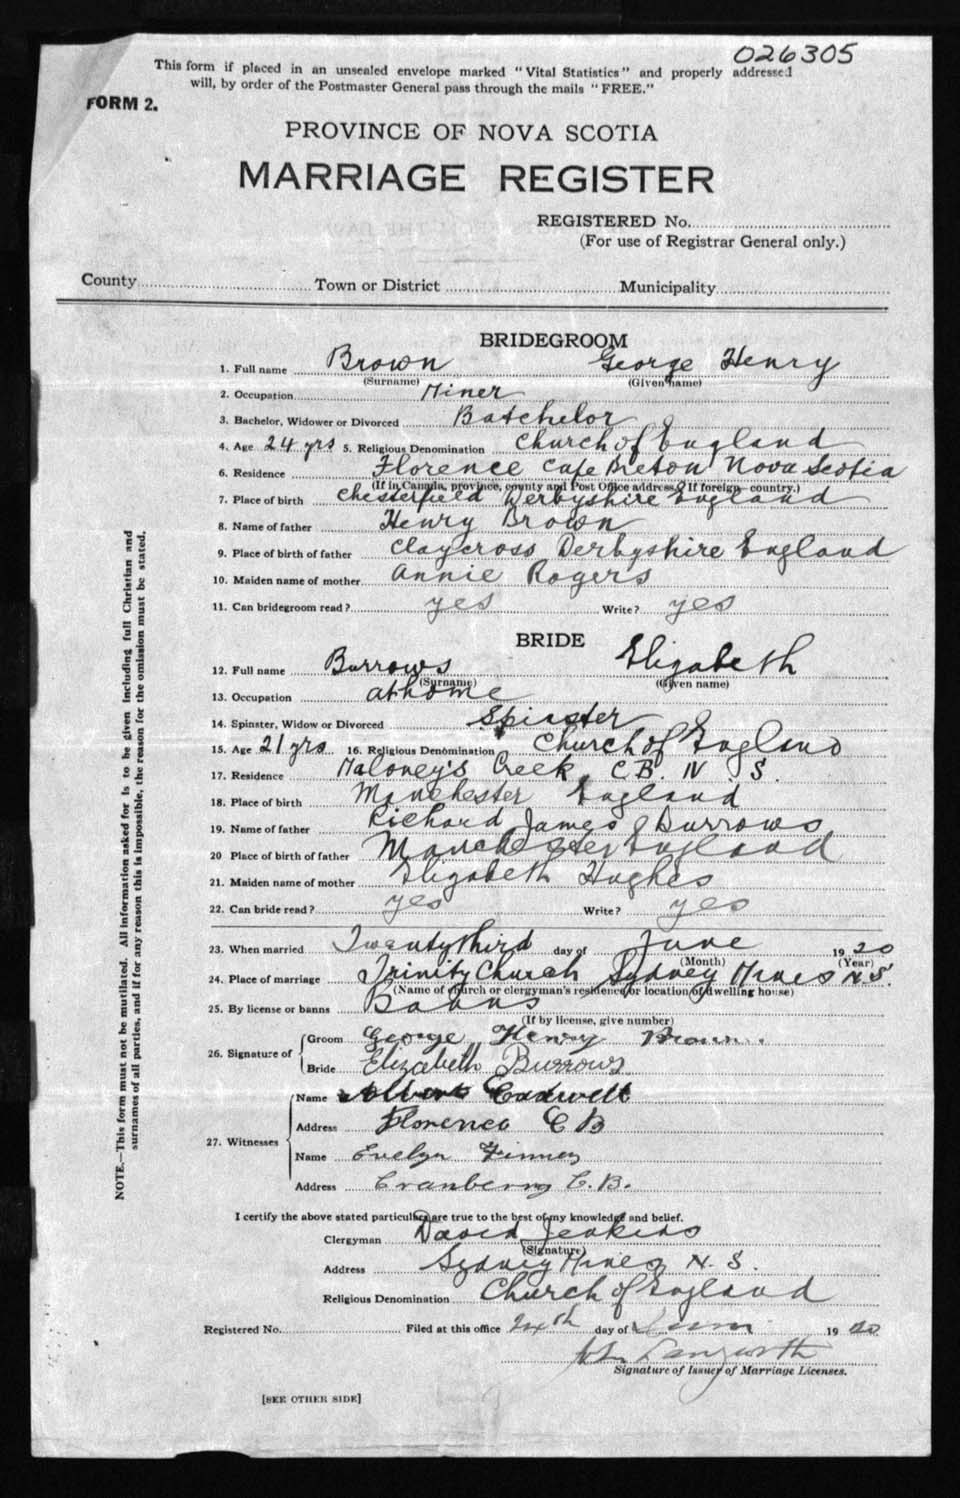 026305
This form if placed in an unsealed envelope marked "Vital Statistics" and properly addressed
will, by order of the Postmaster General pass through the mails "FREE."
FORM 2.
PROVINCE OF NOVA SCOTIA
MARRIAGE REGISTER
REGISTERED No.
(For use of Registrar General only.)
County Town or District Municipality
BRIDEGROOM
1. Full name Brown George Henry
(Surname) (Given name)
2. Occupation Miner
3. Bachelor, Widower or Divorced Batchelor
4. Age 24 yrs 5. Religious Denomination Church of England
6. Residence Florence Cape Breton Nova Scotia
(If in Canada, province, county and Post Office address. If foreign—country.)
7. Place of birth Chesterfield Derbyshire England
8. Name of father Henry Brown
9. Place of birth of father Claycross Derbyshire England
10. Maiden name of mother Annie Rogers
11. Can bridegroom read? yes Write? yes
BRIDE
12. Full name Burrows Elizabeth
(Surname) (Given name)
13. Occupation at home
14. Spinster, Widow or Divorced Spinster
15. Age 21 yrs 16. Religious Denomination Church of England
17. Residence Maloney's Creek, C.B. N. S.
18. Place of birth Manchester England
19. Name of father Richard James Burrows
20 Place of birth of father Manchester England
21. Maiden name of mother Elizabeth Hughes
22. Can bride read? yes Write? yes
23. When married Twentythird day of June 1920
(Month) (Year)
24. Place of marriage Trinity Church Sydney Mines N.S.
(Name of church or clergyman's residence or location of dwelling house)
25. By license or banns Banns
(If by license, give number)
26. Signature of Groom George Henry Brown
Bride Elizabeth Burrows
27. Witnesses Name Albert Cadwell
Address Florence C B
Name Evelyn Finney
Address Cranberry C. B.
I certify the above stated particulars are true to the best of my knowledge and belief.
Clergyman David Jenkins
(Signature)
Address Sydney Mines N. S.
Religious Denomination Church of England
Registered No. Filed at this office day of 1920
Signature of Issuer of Marriage Licenses.
[SEE OTHER SIDE]
NOTE.—This form must not be mutilated. All information asked for is to be given including full Christian and
surnames of all parties, and if for any reason this is impossible, the reason for the omission must be stated.